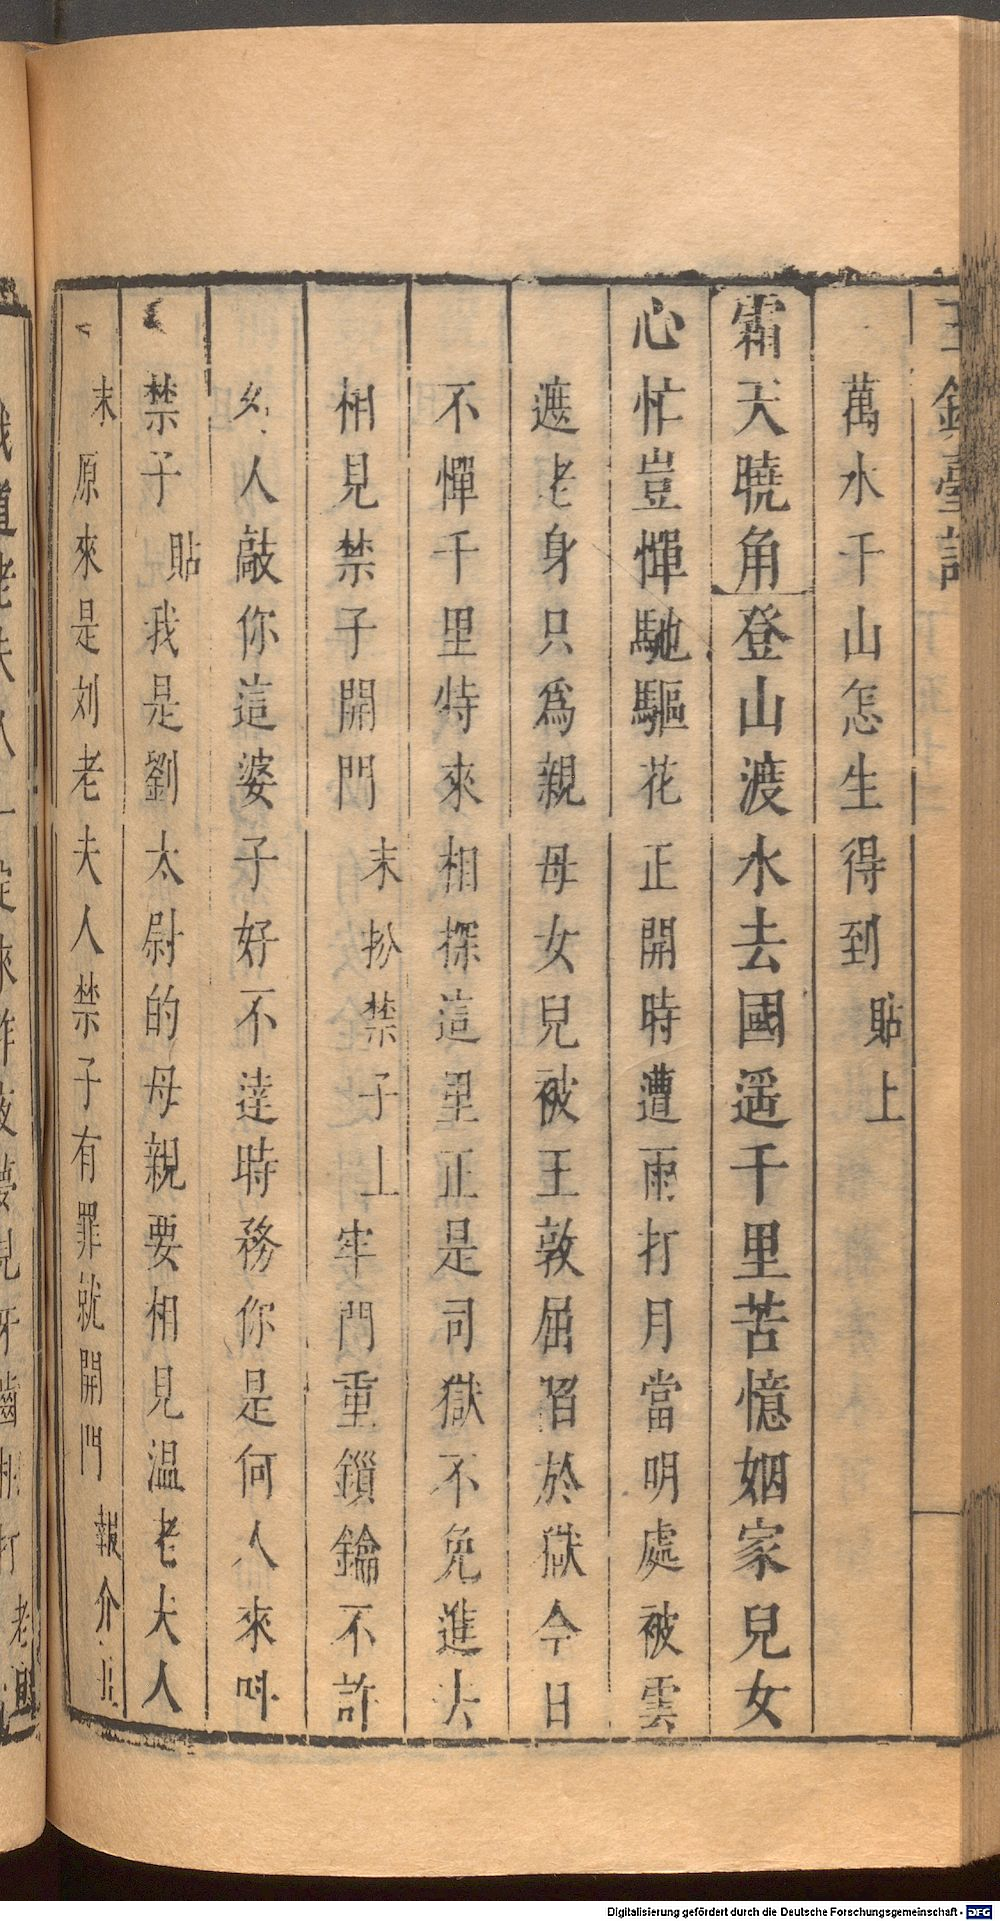 玉鏡臺記
萬水千山怎生得到貼上
霜天曉角登山渡水去國遥千里苦憶姻家兒女
心忙豈憚馳驅花正開時遭雨打月當明處被雲
遮老身只爲親母女兒被王敦屈畱於獄今日
不憚千里特來相探這里正是司獄不免進去
相見禁子開門末扮禁子上牢門重鎖鑰不許
人敲你這婆子好不達時務你是何人來叫
禁子貼我是劉太尉的母親要相見温老夫人
末原來是刘老夫人禁子有罪就開門報介
Digitalisierung gefördert durch die Deutsche Forschungsgemeinschaft - DFG